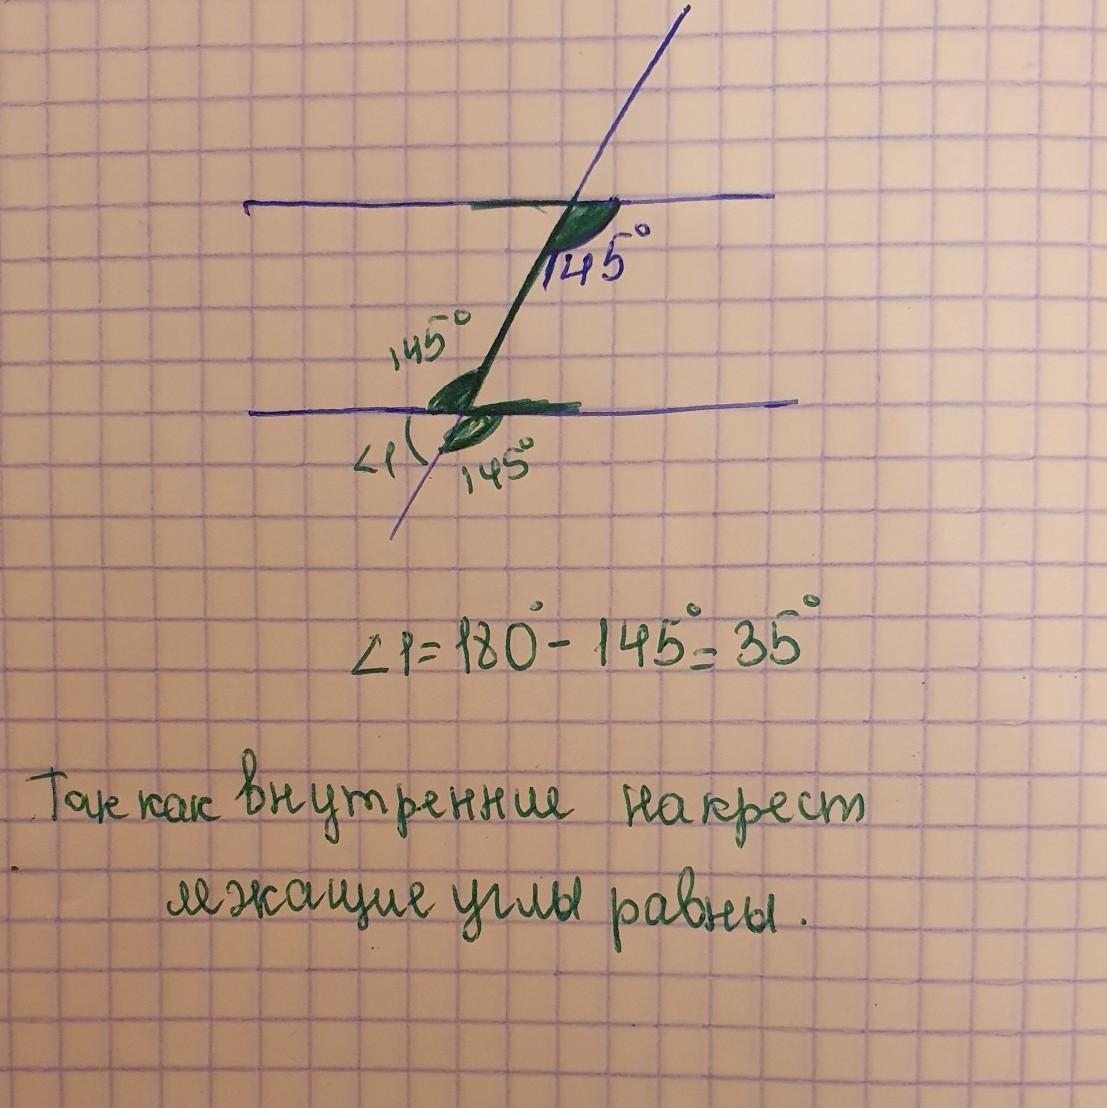 145°
145°
∠1
145°
∠1 = 180° - 145° = 35°
Так как внутренние накрест
лежащие углы равны.